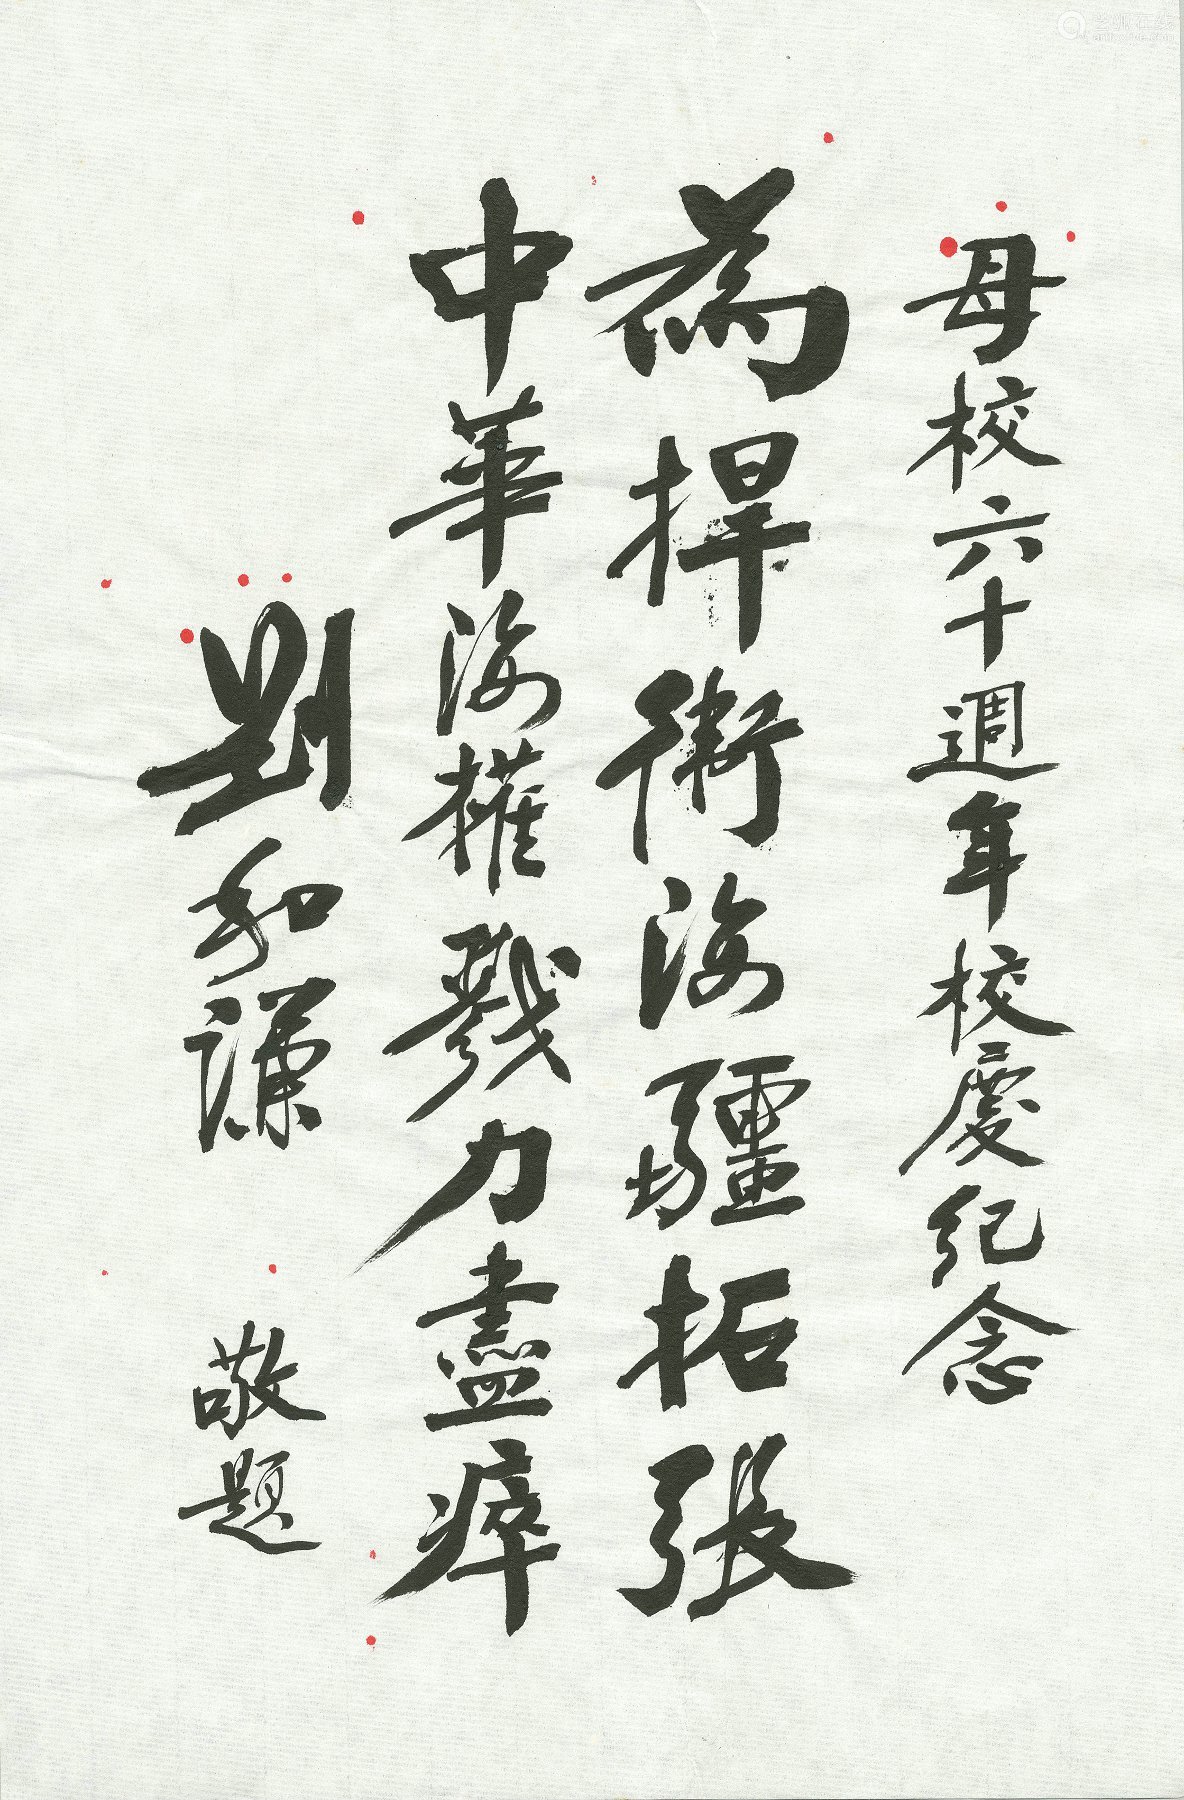 母校六十週年校慶紀念
為捍衛海疆拓張
中華海權戮力盡瘁
劉和謙
敬題